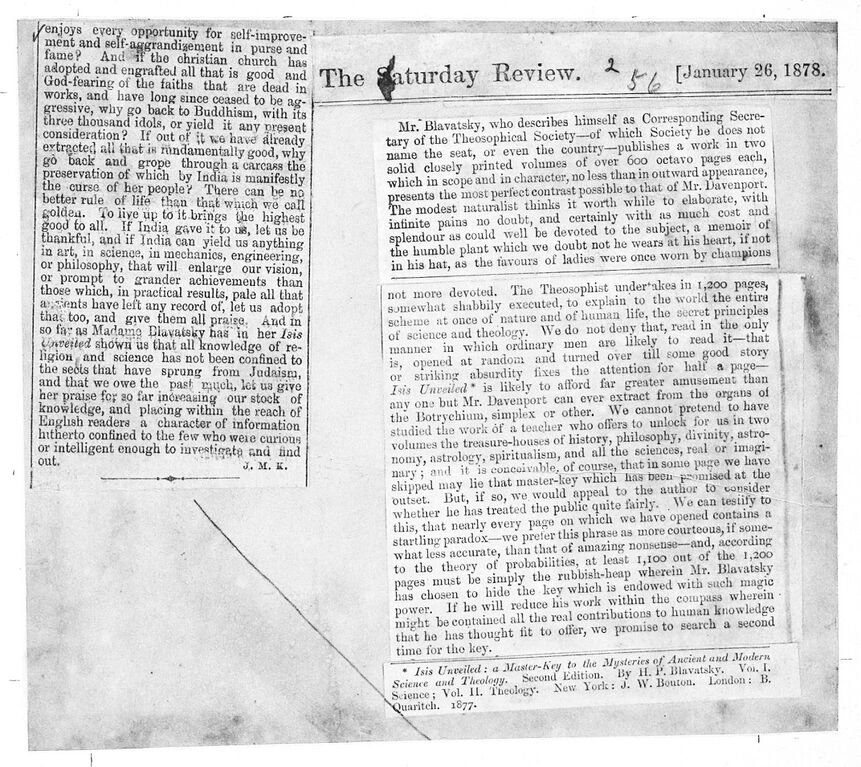 enjoys every opportunity for self-improve-
ment and self-aggrandizement in purse and
fame? And if the christian church has
adopted and engrafted all that is good and
God-fearing of the faiths that are dead in
works, and have long since ceased to be ag-
gressive, why go back to Buddhism, with its
three thousand idols, or yield it any present
consideration? If out of it we have already
extracted all that is fundamentally good, why
go back and grope through a carcass the
preservation of which by India is manifestly
the curse of her people? There can be no
better rule of life than that which we call
golden. To live up to it brings the highest
good to all. If India gave it to us, let us be
thankful, and if India can yield us anything
in art, in science, in mechanics, engineering,
or philosophy, that will enlarge our vision,
or prompt to grander achievements than
those which, in practical results, pale all that
ancients have left any record of, let us adopt
that too, and give them all praise. And in
so far as Madame Blavatsky has in her Isis
Unveiled shown us that all knowledge of re-
ligion and science has not been confined to
the sects that have sprung from Judaism,
and that we owe the past much, let us give
her praise for so far increasing our stock of
knowledge, and placing within the reach of
English readers a character of information
hitherto confined to the few who were curious
or intelligent enough to investigate and find
out. J. M. K.
The Saturday Review. 2 56 [January 26, 1878.
Mr. Blavatsky, who describes himself as Corresponding Secre-
tary of the Theosophical Society—of which Society he does not
name the seat, or even the country—publishes a work in two
solid closely printed volumes of over 600 octavo pages each,
which in scope and in character, no less than in outward appearance,
presents the most perfect contrast possible to that of Mr. Davenport.
The modest naturalist thinks it worth while to elaborate, with
infinite pains no doubt, and certainly with as much cost and
splendour as could well be devoted to the subject, a memoir of
the humble plant which we doubt not he wears at his heart, if not
in his hat, as the favours of ladies were once worn by champions
not more devoted. The Theosophist undertakes in 1,200 pages,
somewhat shabbily executed, to explain to the world the entire
scheme at once of nature and of human life, the secret principles
of science and theology. We do not deny that, read in the only
manner in which ordinary men are likely to read it—that
is, opened at random and turned over till some good story
or striking absurdity fixes the attention for half a page—
Isis Unveiled * is likely to afford far greater amusement than
any one but Mr. Davenport can ever extract from the organs of
the Botrychium, simplex or other. We cannot pretend to have
studied the work of a teacher who offers to unlock for us in two
volumes the treasure-houses of history, philosophy, divinity, astro-
nomy, astrology, spiritualism, and all the sciences, real or imagi-
nary; and it is conceivable, of course, that in some page we have
skipped may lie that master-key which has been promised at the
outset. But, if so, we would appeal to the author to consider
whether he has treated the public quite fairly. We can testify to
this, that nearly every page on which we have opened contains a
startling paradox—we prefer this phrase as more courteous, if some-
what less accurate, than that of amazing nonsense—and, according
to the theory of probabilities, at least 1,100 out of the 1,200
pages must be simply the rubbish-heap wherein Mr. Blavatsky
has chosen to hide the key which is endowed with such magic
power. If he will reduce his work within the compass wherein
might be contained all the real contributions to human knowledge
that he has thought fit to offer, we promise to search a second
time for the key.
* Isis Unveiled: a Master-Key to the Mysteries of Ancient and Modern
Science and Theology. Second Edition. By H. P. Blavatsky. Vol. I.
Science; Vol. II. Theology. New York: J. W. Bouton. London: B.
Quaritch. 1877.